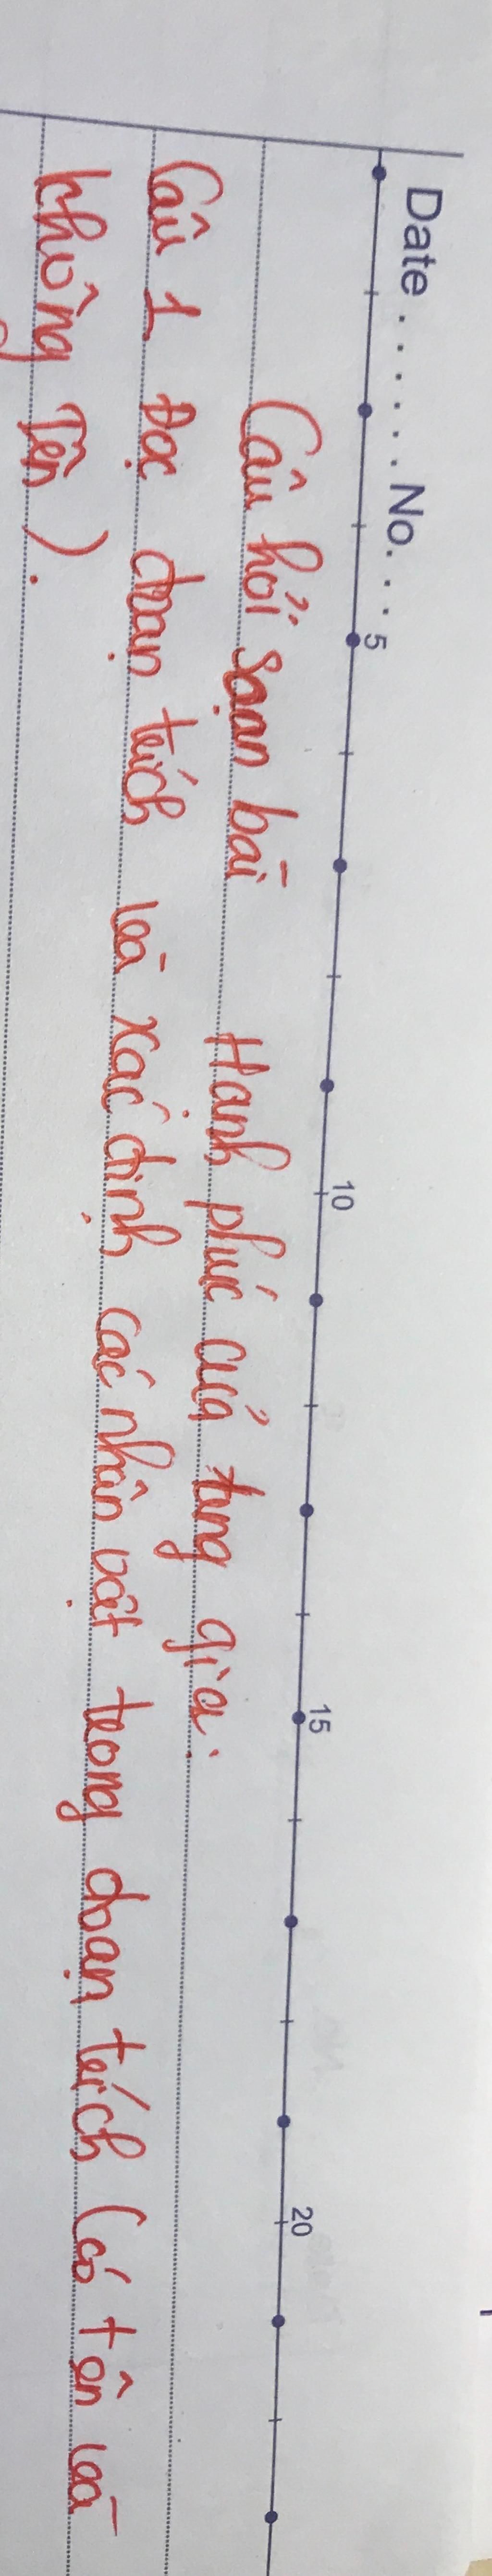 Date . . . . . . . No. . .
5 10 15 20
Câu hỏi soạn bài Hạnh phúc của tang gia.
Câu 1 Đọc đoạn trích và xác định các nhân vật trong đoạn trích (có tên và
không Tên ).